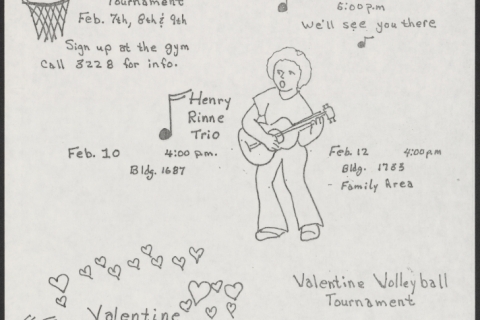 Tournament
Feb. 7th, 8th & 9th
Sign up at the gym
Call 3228 for info.
6:00 p.m
We'll see you there
Henry
Rinne
Trio
Feb. 10 4:00 p.m.
Bldg. 1687
Feb. 12 4:00 pm
Bldg. 1753
Family Area
Valentine
Valentine Volleyball
Tournament